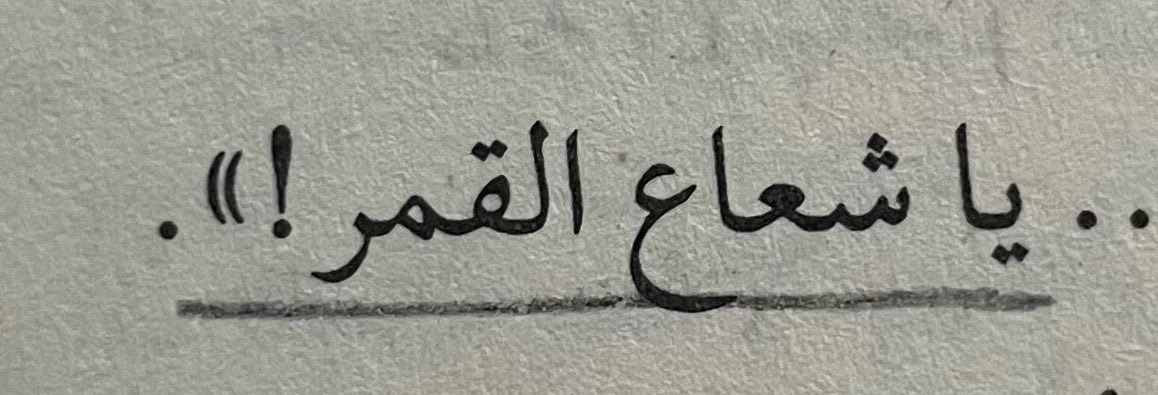 .. يا شعاع القمر !».